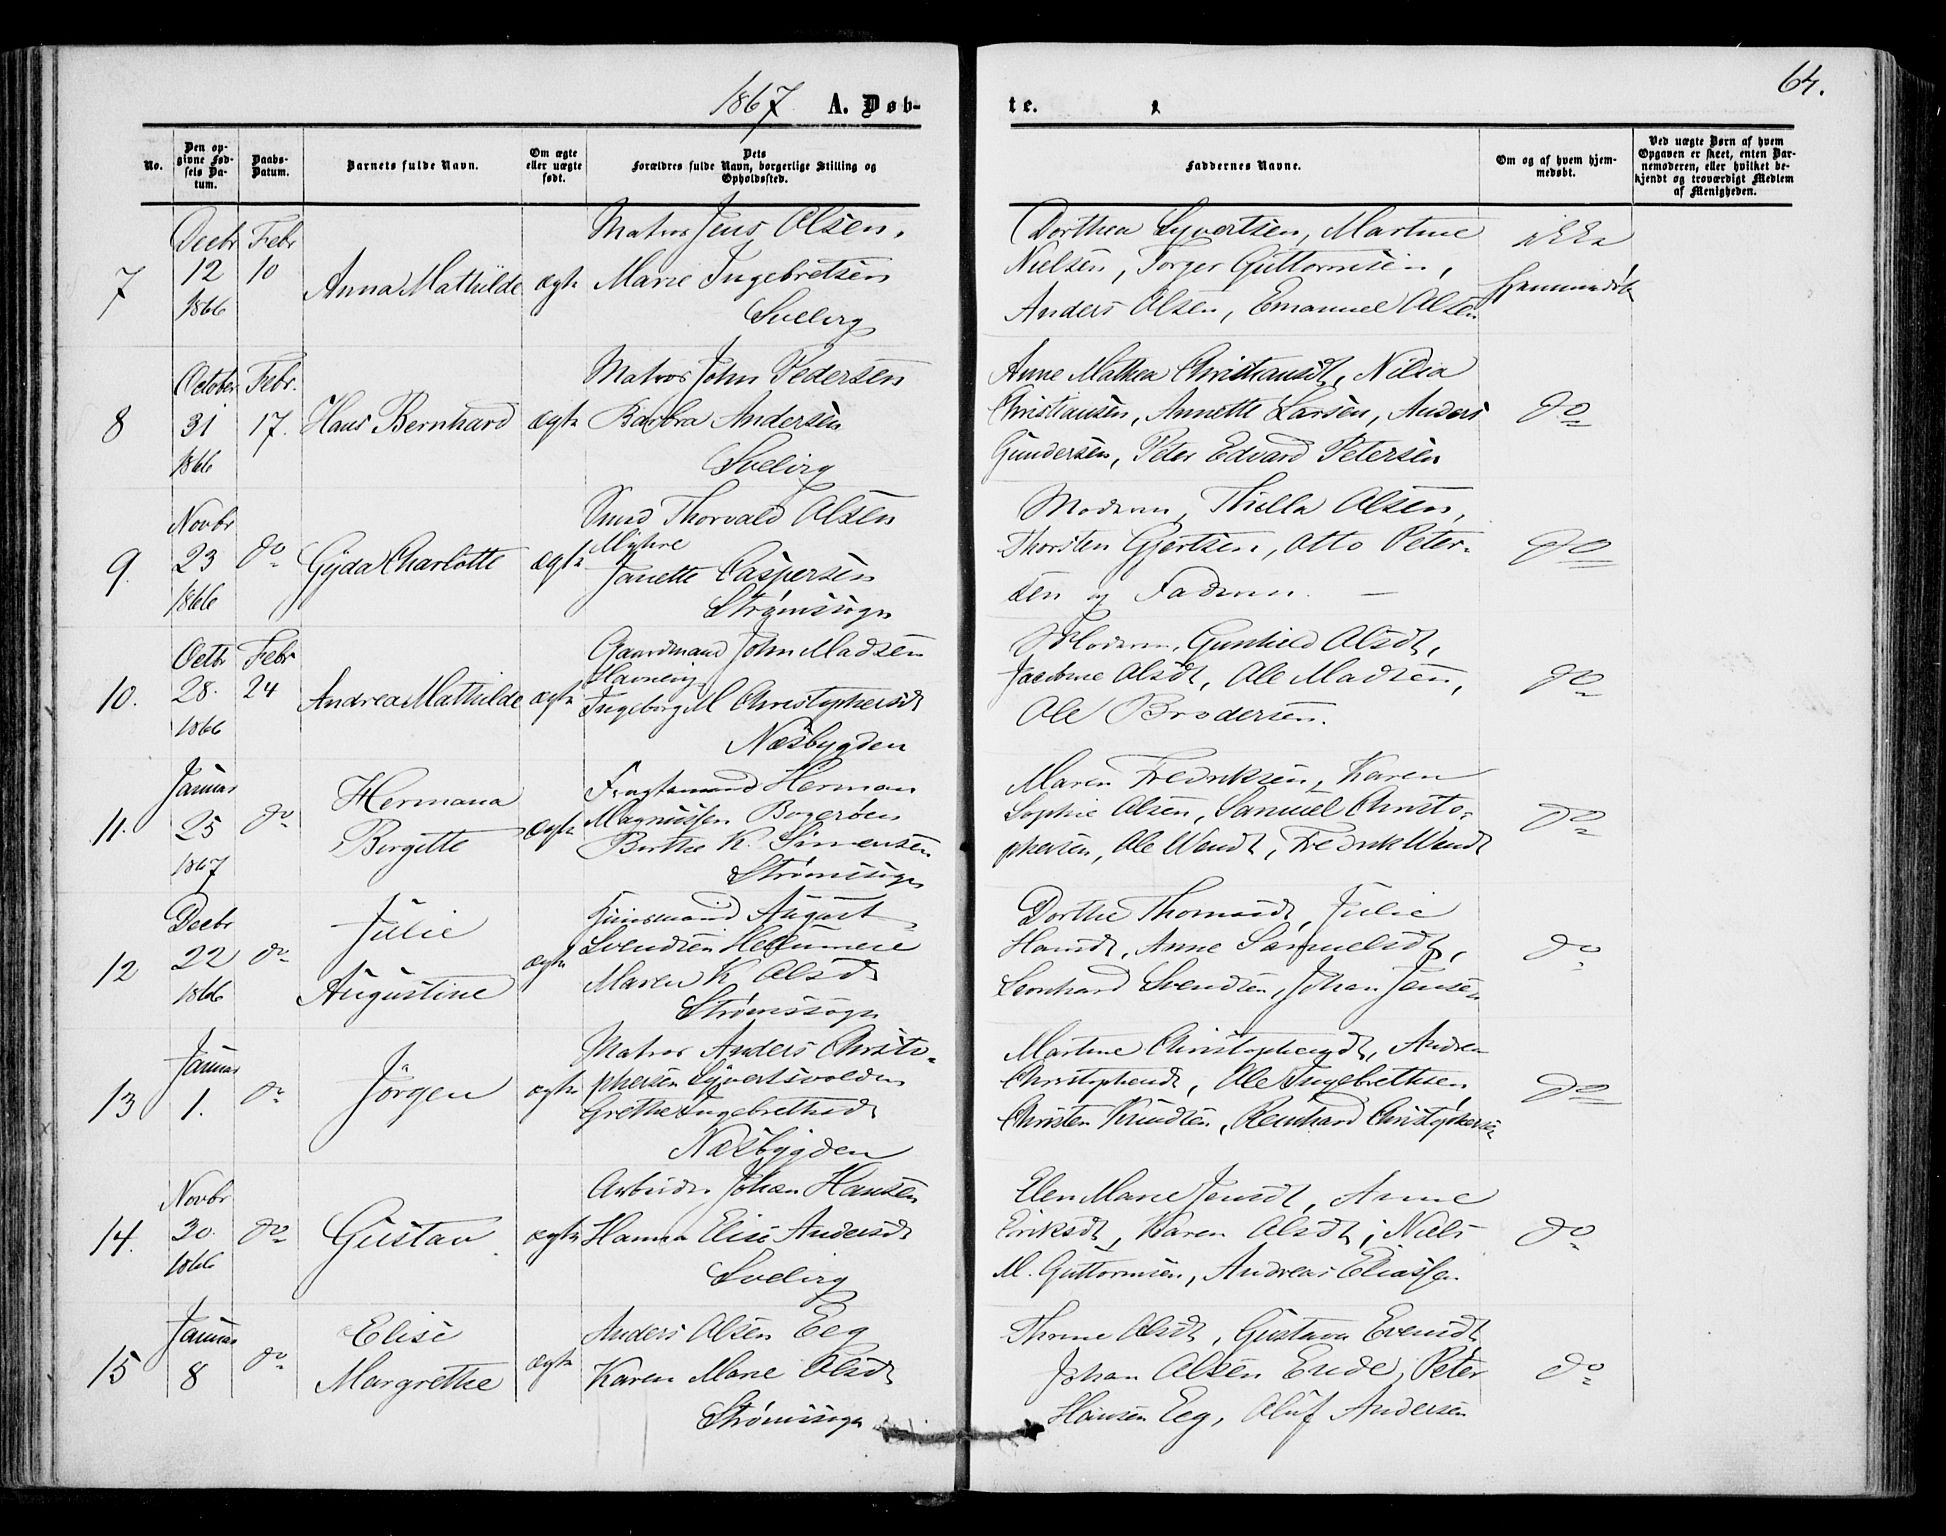 1867 A. Døb-
te.
64.
No.
Den op-
givne Fød-
sels Da-
tum.
Daabs-
Datum.
Barnets fulde Navn.
Om ægte
eller uægte
født.
Dets
Forældres fulde Navn, borgerlige Stilling og
Opholdssted.
Faddernes Navne.
Om og af hvem hjem-
medøbt.
Ved uægte Børn af hvem
Opgaven er skeet, enten Bar-
nemoderen, eller hvilket be-
kjendt og troværdigt Medlem
af Menigheden.
7
Decbr
12
1866
Febr
10
Anna Mathilde
ægte
Matros Jens Olsen,
Marie Ingebretsen
Svelvig
Dorthea Syvertsen, Martine
Nielsen, Torger Guttormsen,
Anders Olsen, Emanuel Olsen
ikke
hjemmedøbt
8
October
31
1866
Febr.
17.
Hans Bernhard
ægte
Matros John Pedersen
Barbra Andersen
Svelvig
Anne Mathea Christiansdt, Nilia
Christiansen, Annette Larsen, Anders
Gundersen, Peter Edvard Petersen
do
9.
Novbr
23
1866
do
Gyda Charlotte
ægte
Smed Thorvald Olsen
Myhre
Janette Caspersen
Strømssogn
Moderen, Thella Olsen,
Thorsten Gjertsen, Otto Peter-
sen og Faderen.
do
10.
Octbr
28.
1866
Febr
24
Andrea Mathilde
ægte
Gaardmand John Madsen
Havnevig
Ingeborg M Christophersdt
Næsbygden
Moderen, Gunhild Olsdt,
Jacobine Olsdt, Ole Madsen,
Ole Brodersen.
do
11.
Januar
25
1867
do
Hermana
Birgitte
ægte
Fragtemand Herman
Magnussen Bogerøen
Berthe K. Simensen
Strømssogn
Maren Fredriksen, Karen
Sophie Olsen, Samuel Christo-
phersen, Ole Wendt, Fredrik Wendt
do
12
Decbr
22
1866
do
Julie
Augustine
ægte
August
Svendsen
Maren K. Olsdt
Strømssogn
Dorthe Thomasdt, Julie
Hansdt, Anne Samuelsdt,
Leonhard Svendsen, Johan Jensen
do
13
Januar
1.
do
Jörgen
ægte
Matros Anders Christo-
phersen Syvertsvolden
Grethe Ingebrethsdt
Næsbygden
Martine Christophersdt, Andrea
Christophersdt, Ole Ingebrethsen
Christen Knudsen, Reinhard Christophersen
do
14.
Novbr
30.
1866
do
Gustav
ægte
Arbeider Johan Hansen
Hanna Elise Andersdt
Svelvig
Elen Marie Jensdt, Anne
Eriksdt, Karen Olsdt, Niels
M. Guttormsen, Andreas Eliassen
do
15
Januar
8
do
Elise
Margrethe
ægte
Anders Olsen Eeg
Karen Marie Olsdt
Strømssogn
Thrine Olsdt, Gustava Evensdt
Johan Olsen Eide, Peter
Hansen Eeg, Oluf Andersen
do